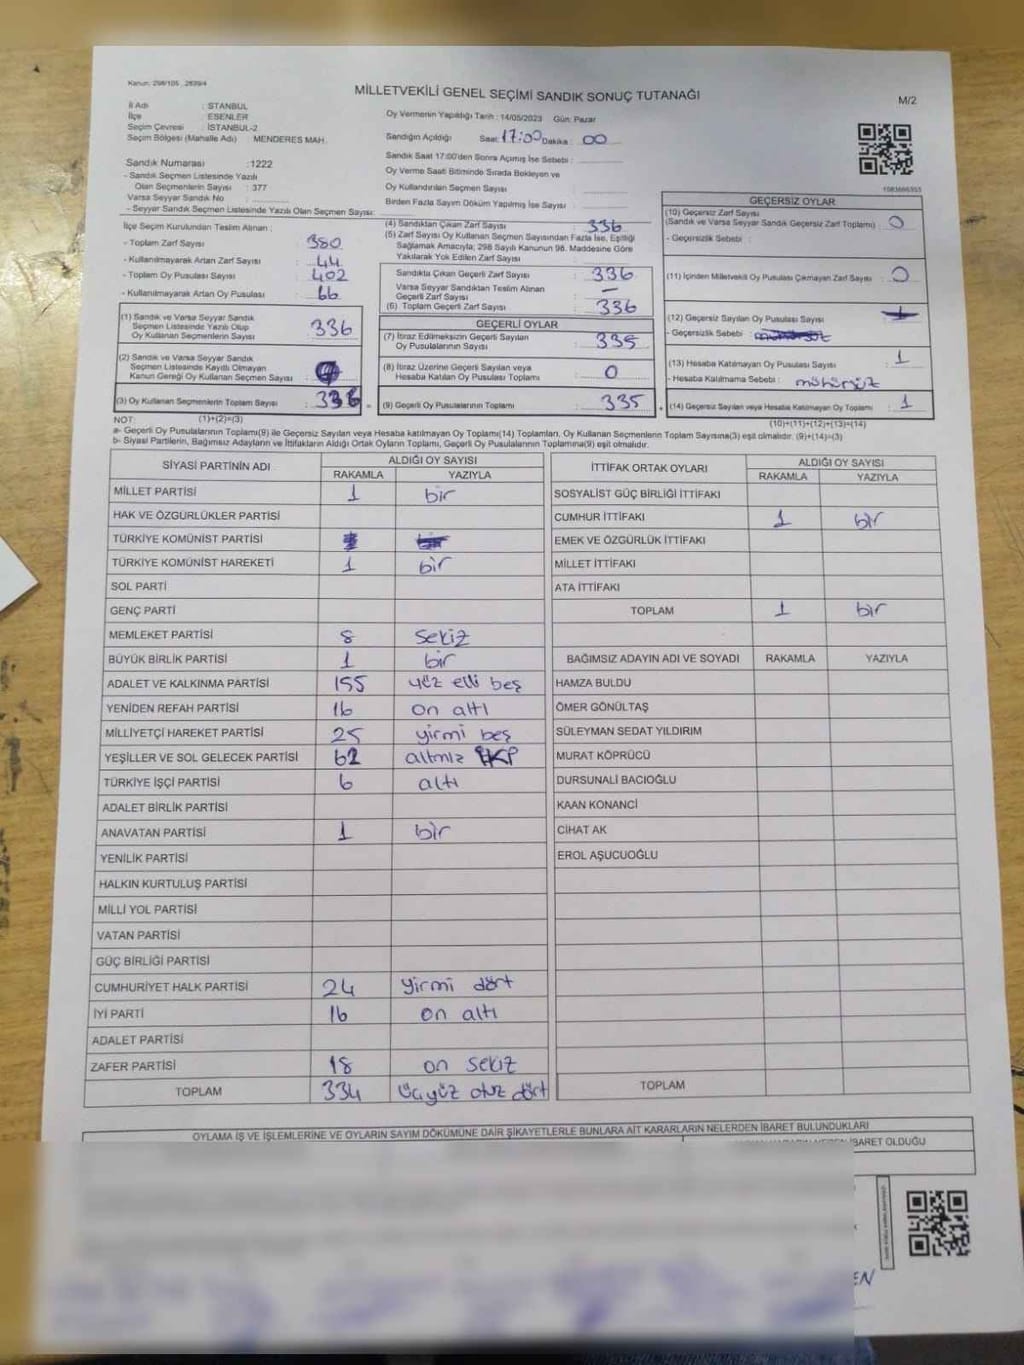 Kanun: 298/105 , 2839/4
MİLLETVEKİLİ GENEL SEÇİMİ SANDIK SONUÇ TUTANAĞI
M/2
İl Adı : İSTANBUL
İlçe : ESENLER
Seçim Çevresi : İSTANBUL-2
Seçim Bölgesi (Mahalle Adı) MENDERES MAH.
Sandık Numarası :1222
- Sandık Seçmen Listesinde Yazılı
Olan Seçmenlerin Sayısı : 377
Varsa Seyyar Sandık No
- Seyyar Sandık Seçmen Listesinde Yazılı Olan Seçmen Sayısı:
Oy Vermenin Yapıldığı Tarih : 14/05/2023 Gün: Pazar
Sandığın Açıldığı Saat: 17:00 Dakika : 00
Sandık Saat 17:00'den Sonra Açılmış İse Sebebi :
Oy Verme Saati Bitiminde Sırada Bekleyen ve
Oy Kullandırılan Seçmen Sayısı :
Birden Fazla Sayım Döküm Yapılmış İse Sayısı :
İlçe Seçim Kurulundan Teslim Alınan :
- Toplam Zarf Sayısı : 380
- Kullanılmayarak Artan Zarf Sayısı : 44
- Toplam Oy Pusulası Sayısı : 402
- Kullanılmayarak Artan Oy Pusulası : 66
(1) Sandık ve Varsa Seyyar Sandık
Seçmen Listesinde Yazılı Olup
Oy Kullanan Seçmenlerin Sayısı : 336
(2) Sandık ve Varsa Seyyar Sandık
Seçmen Listesinde Kayıtlı Olmayan
Kanun Gereği Oy Kullanan Seçmen Sayısı :
(3) Oy Kullanan Seçmenlerin Toplam Sayısı : 336
(4) Sandıktan Çıkan Zarf Sayısı : 336
(5) Zarf Sayısı Oy Kullanan Seçmen Sayısından Fazla İse, Eşitliği
Sağlamak Amacıyla; 298 Sayılı Kanunun 98. Maddesine Göre
Yakılarak Yok Edilen Zarf Sayısı :
Sandıkta Çıkan Geçerli Zarf Sayısı : 336
Varsa Seyyar Sandıktan Teslim Alınan
Geçerli Zarf Sayısı : —
(6) Toplam Geçerli Zarf Sayısı : 336
GEÇERLİ OYLAR
(7) İtiraz Edilmeksizin Geçerli Sayılan
Oy Pusulalarının Sayısı : 335
(8) İtiraz Üzerine Geçerli Sayılan veya
Hesaba Katılan Oy Pusulası Toplamı : 0
= (9) Geçerli Oy Pusulalarının Toplamı : 335
GEÇERSİZ OYLAR
(10) Geçersiz Zarf Sayısı
(Sandık ve Varsa Seyyar Sandık Geçersiz Zarf Toplamı) : 0
- Geçersizlik Sebebi :
(11) İçinden Milletvekili Oy Pusulası Çıkmayan Zarf Sayısı : 0
(12) Geçersiz Sayılan Oy Pusulası Sayısı :
- Geçersizlik Sebebi :
(13) Hesaba Katılmayan Oy Pusulası Sayısı : 1
- Hesaba Katılmama Sebebi : mühürsüz
+ (14) Geçersiz Sayılan veya Hesaba Katılmayan Oy Toplamı : 1
NOT: (1)+(2)=(3)
(10)+(11)+(12)+(13)=(14)
a- Geçerli Oy Pusulalarının Toplamı(9) ile Geçersiz Sayılan veya Hesaba katılmayan Oy Toplamı(14) Toplamları, Oy Kullanan Seçmenlerin Toplam Sayısına(3) eşit olmalıdır. (9)+(14)=(3)
b- Siyasi Partilerin, Bağımsız Adayların ve İttifakların Aldığı Ortak Oyların Toplamı, Geçerli Oy Pusulalarının Toplamına(9) eşit olmalıdır.
SİYASİ PARTİNİN ADI ALDIĞI OY SAYISI
RAKAMLA YAZIYLA
MİLLET PARTİSİ 1 bir
HAK VE ÖZGÜRLÜKLER PARTİSİ
TÜRKİYE KOMÜNİST PARTİSİ
TÜRKİYE KOMÜNİST HAREKETİ 1 bir
SOL PARTİ
GENÇ PARTİ
MEMLEKET PARTİSİ 8 sekiz
BÜYÜK BİRLİK PARTİSİ 1 bir
ADALET VE KALKINMA PARTİSİ 155 yüz elli beş
YENİDEN REFAH PARTİSİ 16 on altı
MİLLİYETÇİ HAREKET PARTİSİ 25 yirmi beş
YEŞİLLER VE SOL GELECEK PARTİSİ 62 altmız
TÜRKİYE İŞÇİ PARTİSİ 6 altı
ADALET BİRLİK PARTİSİ
ANAVATAN PARTİSİ 1 bir
YENİLİK PARTİSİ
HALKIN KURTULUŞ PARTİSİ
MİLLİ YOL PARTİSİ
VATAN PARTİSİ
GÜÇ BİRLİĞİ PARTİSİ
CUMHURİYET HALK PARTİSİ 24 yirmi dört
İYİ PARTİ 16 on altı
ADALET PARTİSİ
ZAFER PARTİSİ 18 on sekiz
TOPLAM 334 üçyüz otuz dört
İTTİFAK ORTAK OYLARI ALDIĞI OY SAYISI
RAKAMLA YAZIYLA
SOSYALİST GÜÇ BİRLİĞİ İTTİFAKI
CUMHUR İTTİFAKI 1 bir
EMEK VE ÖZGÜRLÜK İTTİFAKI
MİLLET İTTİFAKI
ATA İTTİFAKI
TOPLAM 1 bir
BAĞIMSIZ ADAYIN ADI VE SOYADI RAKAMLA YAZIYLA
HAMZA BULDU
ÖMER GÖNÜLTAŞ
SÜLEYMAN SEDAT YILDIRIM
MURAT KÖPRÜCÜ
DURSUNALİ BACIOĞLU
KAAN KONANCİ
CİHAT AK
EROL AŞUCUOĞLU
TOPLAM
OYLAMA İŞ VE İŞLEMLERİNE VE OYLARIN SAYIM DÖKÜMÜNE DAİR ŞİKAYETLERLE BUNLARA AİT KARARLARIN NELERDEN İBARET BULUNDUKLARI
İBARET OLDUĞU